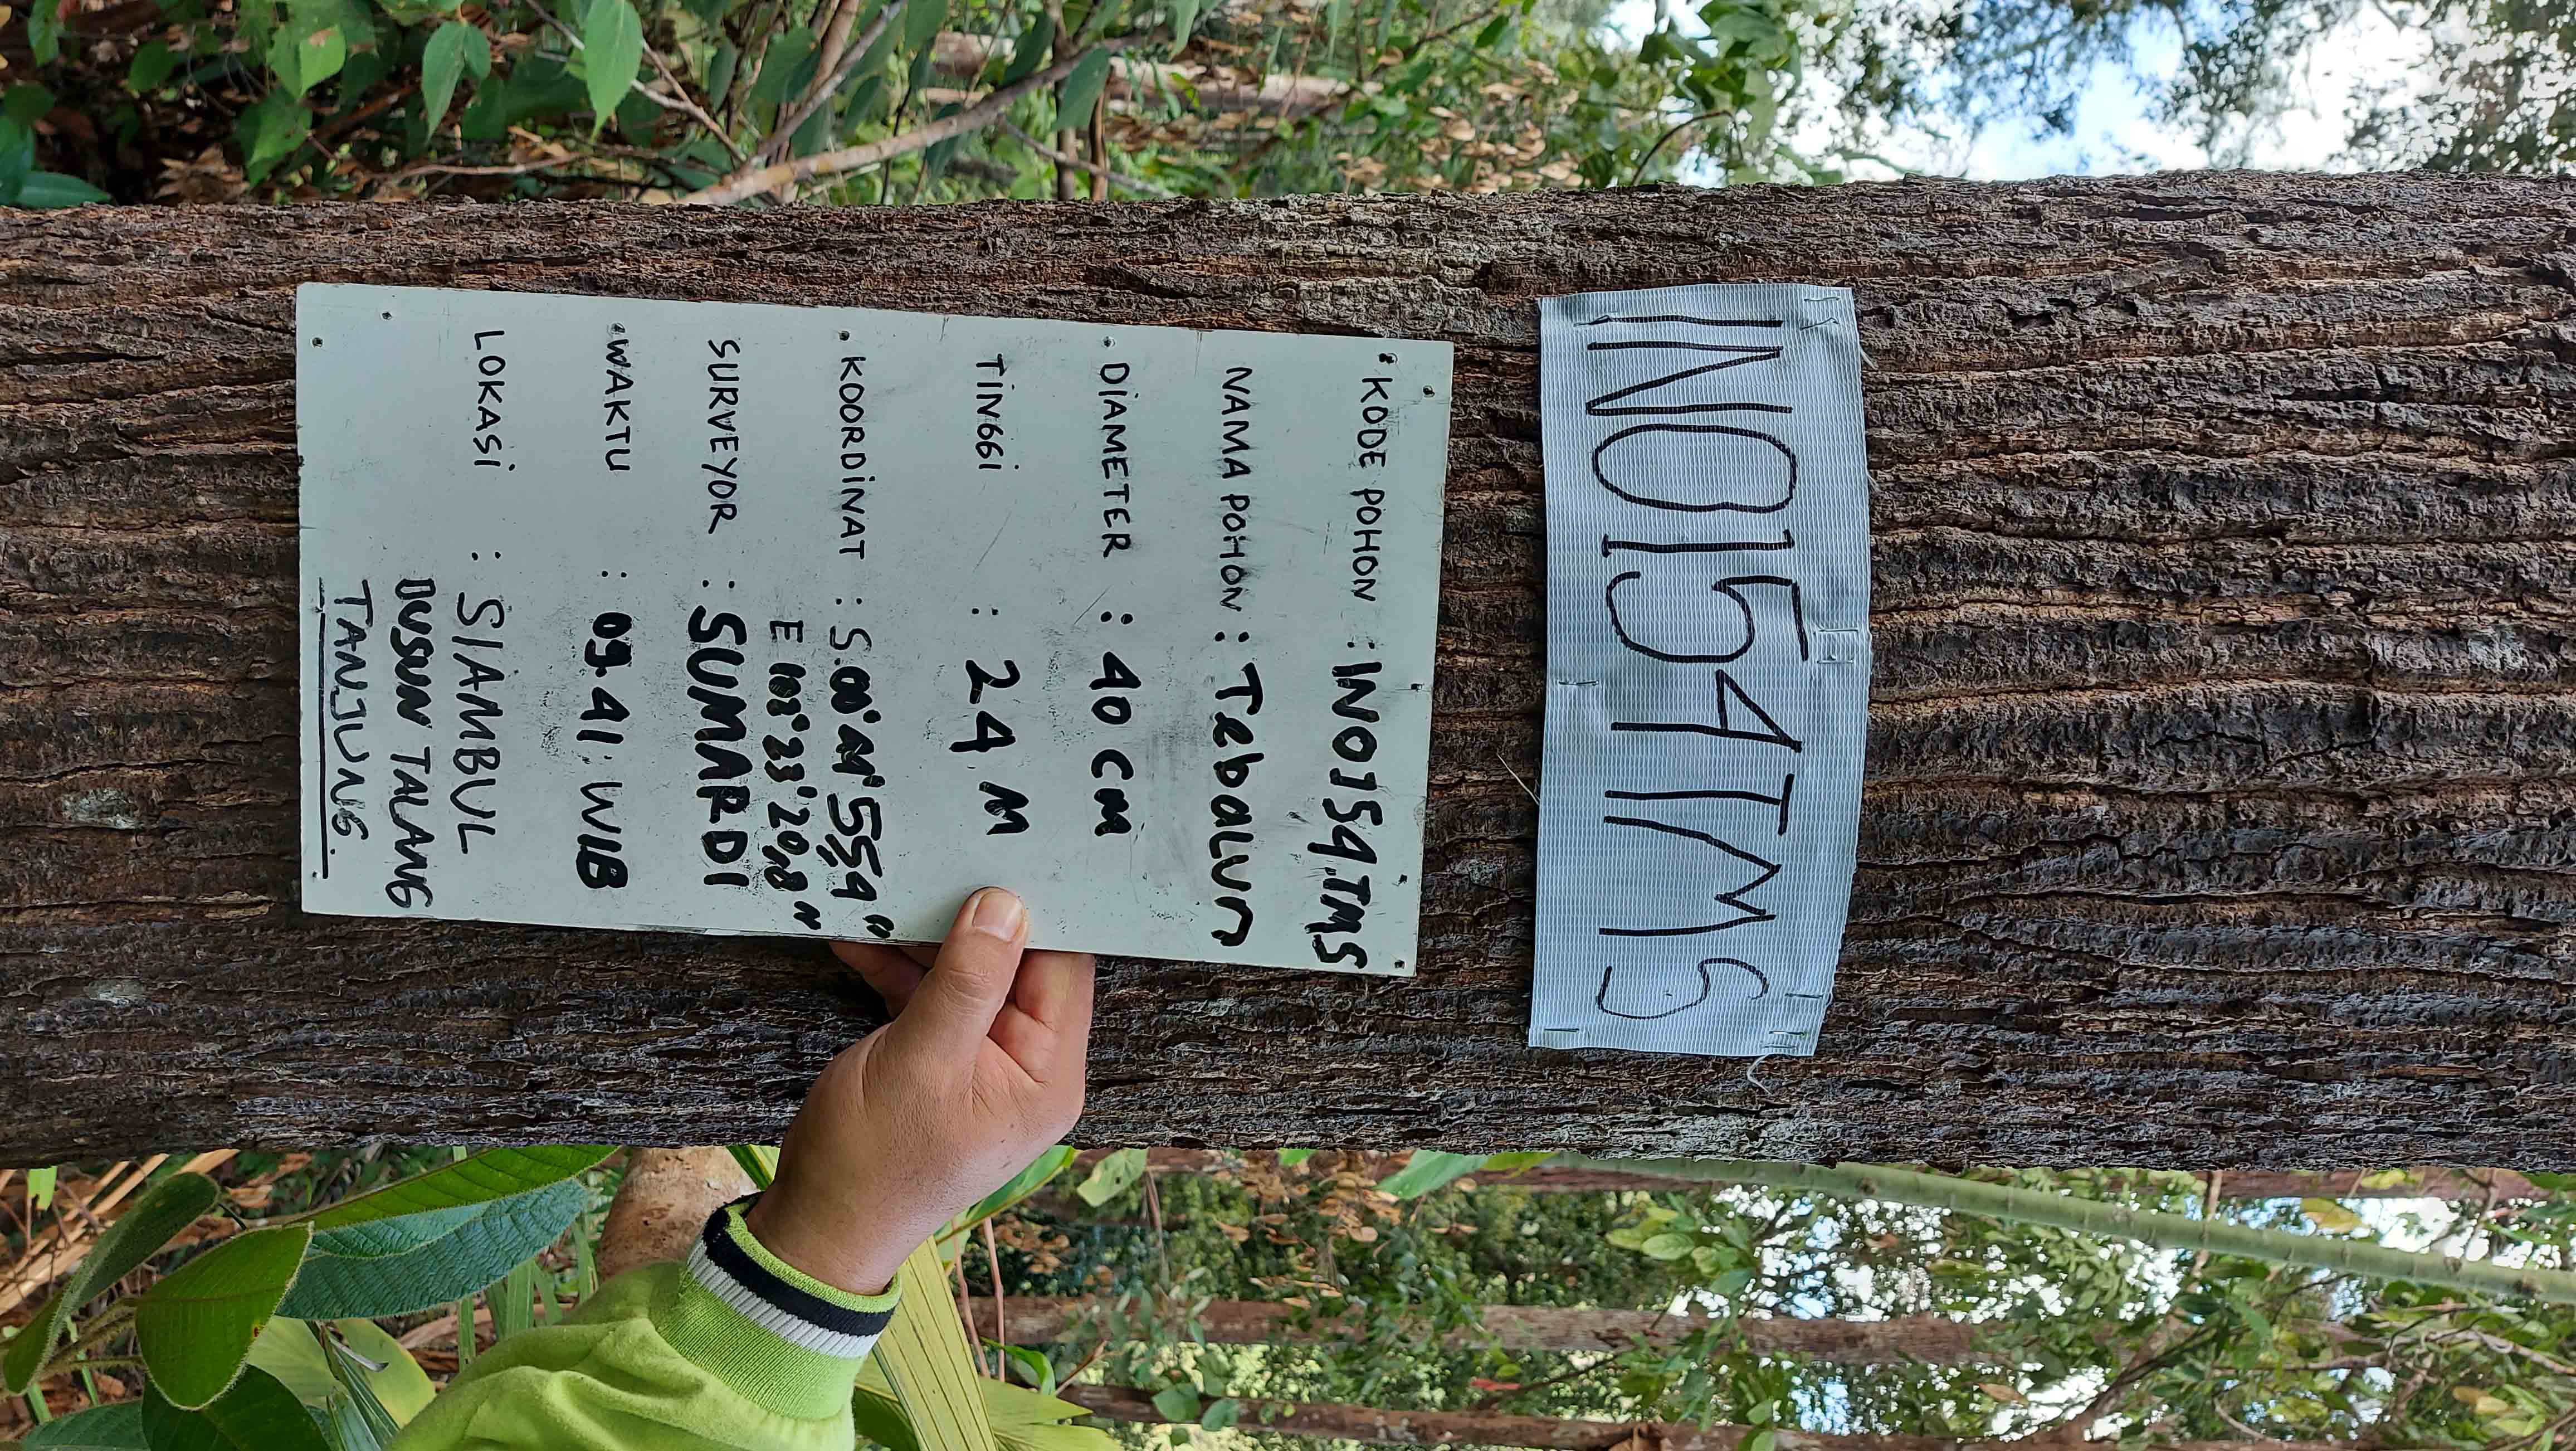 INO154TMS
KODE POHON : INO154.TMS
NAMA POHON : Tebalun
DIAMETER : 40 CM
TINGGI : 24 M
KOORDINAT : S.00° 5554"
E 102° 23' 20,8"
SURVEYOR : SUMARDI
WAKTU : 09.41 WIB
LOKASI : SIAMBUL
DUSUN TALANG
TANJUNG.